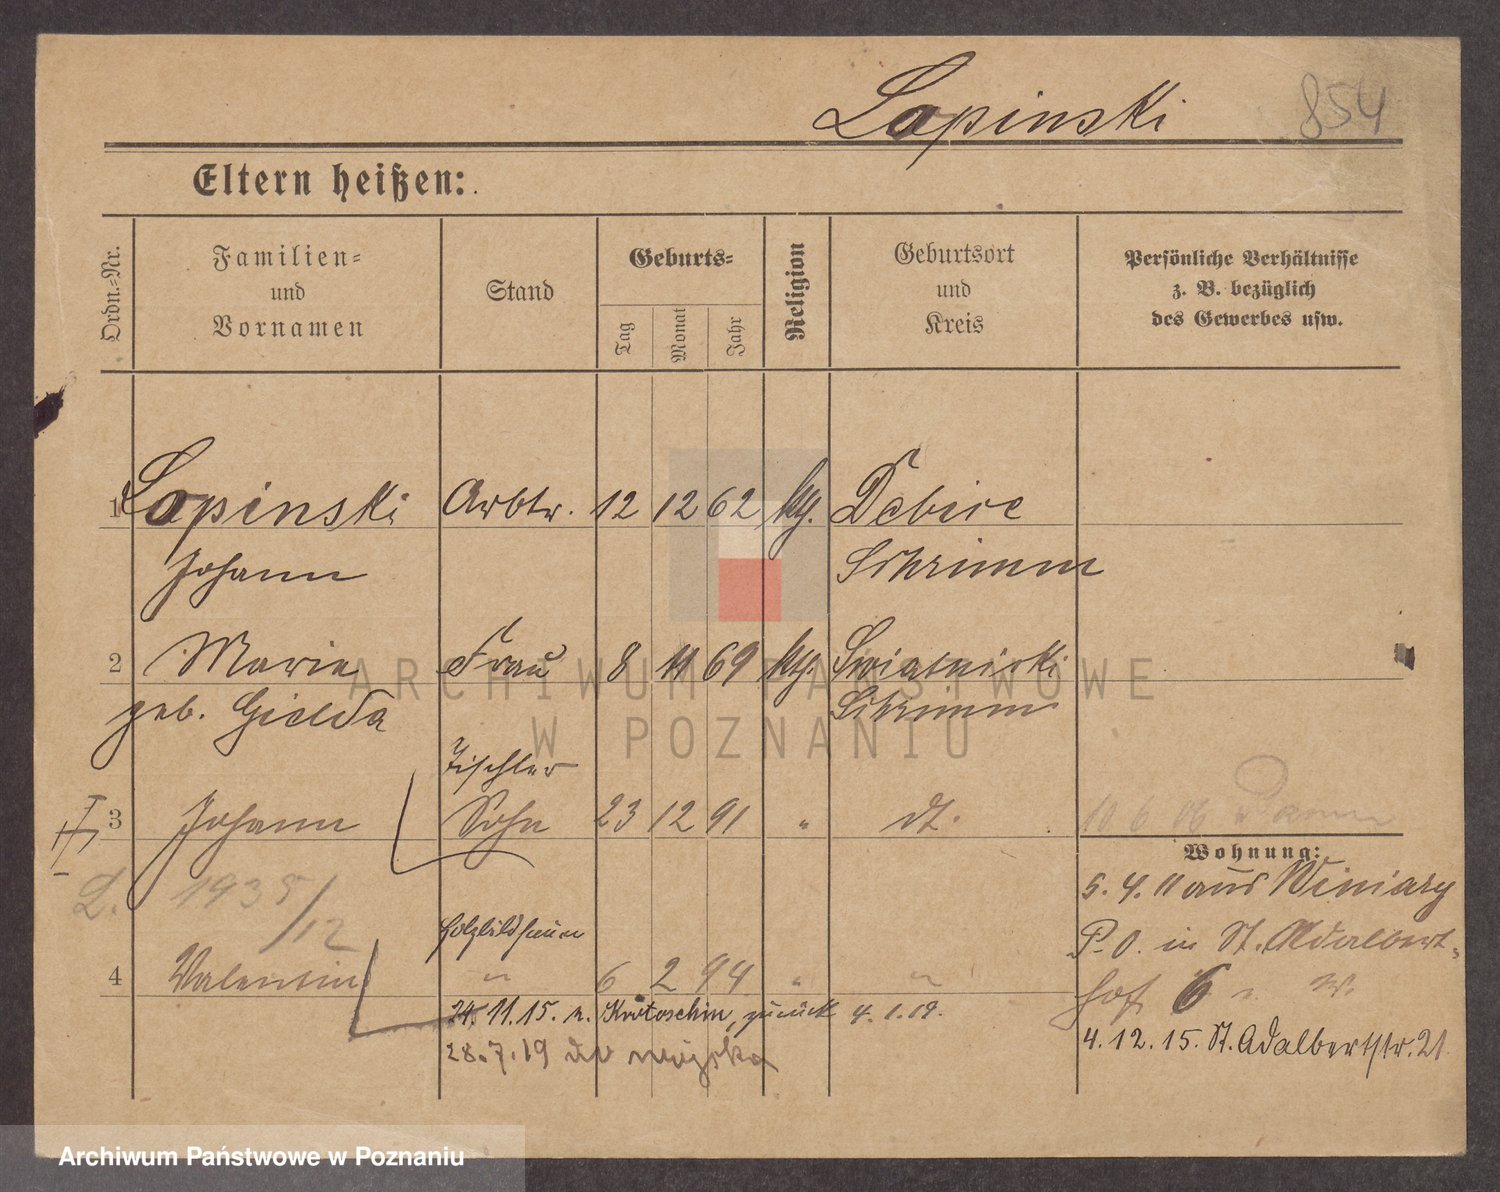 Lopinski 854
Eltern heißen:
Ordn.-Nr.
Familien-
und
Vornamen
Stand
Geburts-
Tag
Monat
Jahr
Religion
Geburtsort
und
Kreis
Persönliche Verhältnisse
z. B. bezüglich
des Gewerbes usw.
1 Lopinski Arbtr. 12 12 62 kg.
Johann Schrimm
2 Marie Frau 8 11 69 kg. Swiatniki
geb. Gielda Schrimm
Tischler
3 Johann Sohn 23 12 91 " dt. 10 6 06
Wohnung:
L. 1935/12
5. 4. 11 aus Winiary
Holzbildhauer
P. O. in St. Adalbert-
4 Valentin " 6 2 94 " "
hof 6
24. 11. 15. n. Krotoschin, zurück 4. 1. 19.
28. 7. 19 do wojska
4. 12. 15. St. Adalbertstr. 21
ARCHIWUM PAŃSTWOWE
W POZNANIU
Archiwum Państwowe w Poznaniu